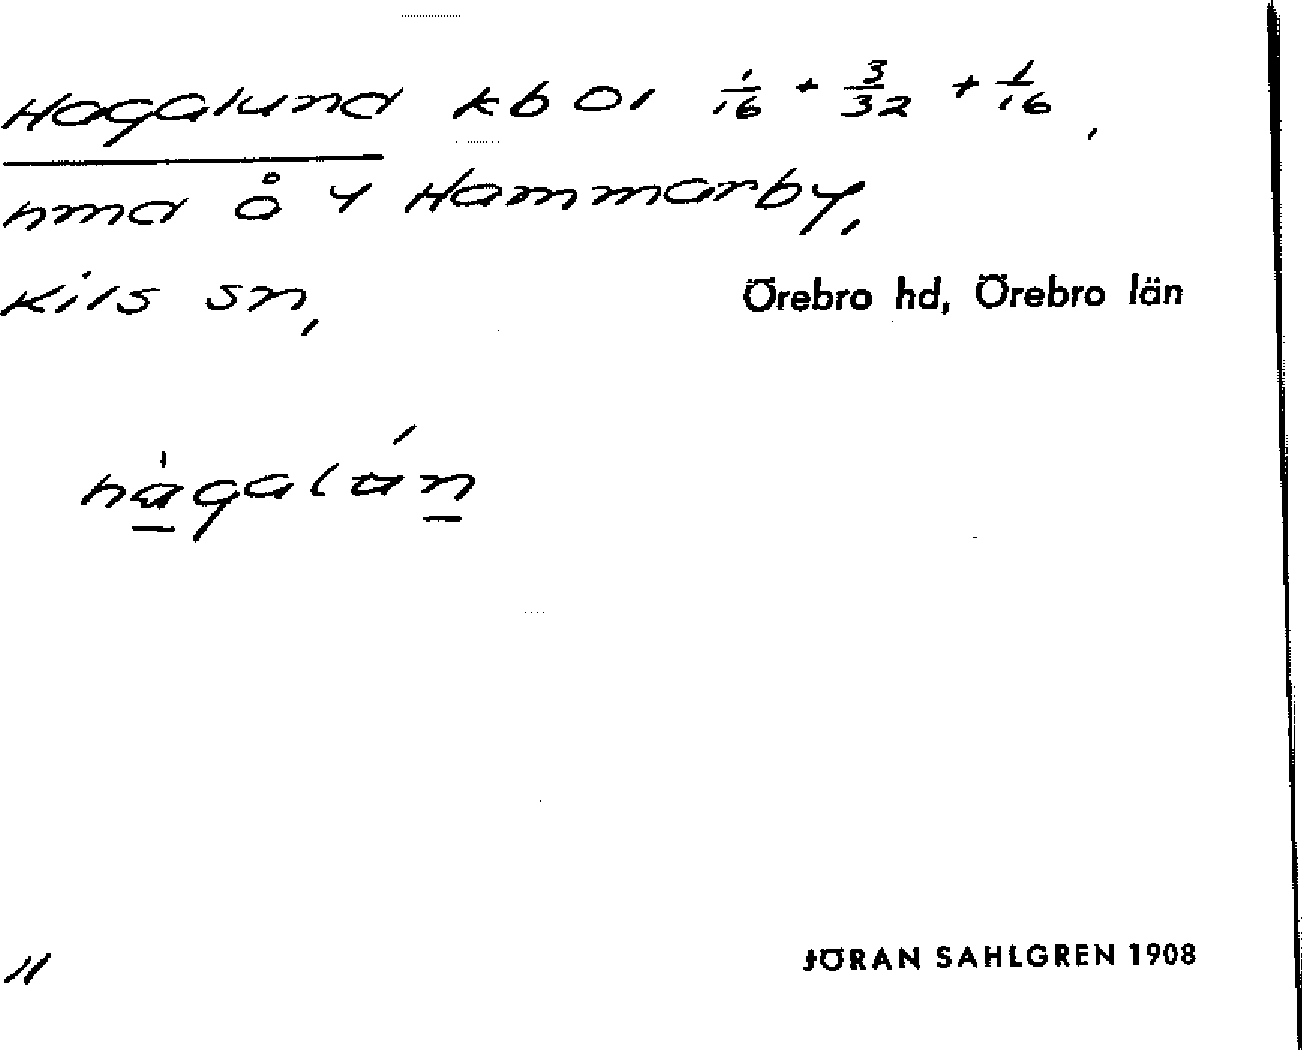 Hagalund kb 01 1/16 + 3/32 + 1/16,
hmd å Y Hammarby,
Kils sn, Örebro hd, Örebro län
JÖRAN SAHLGREN 1908